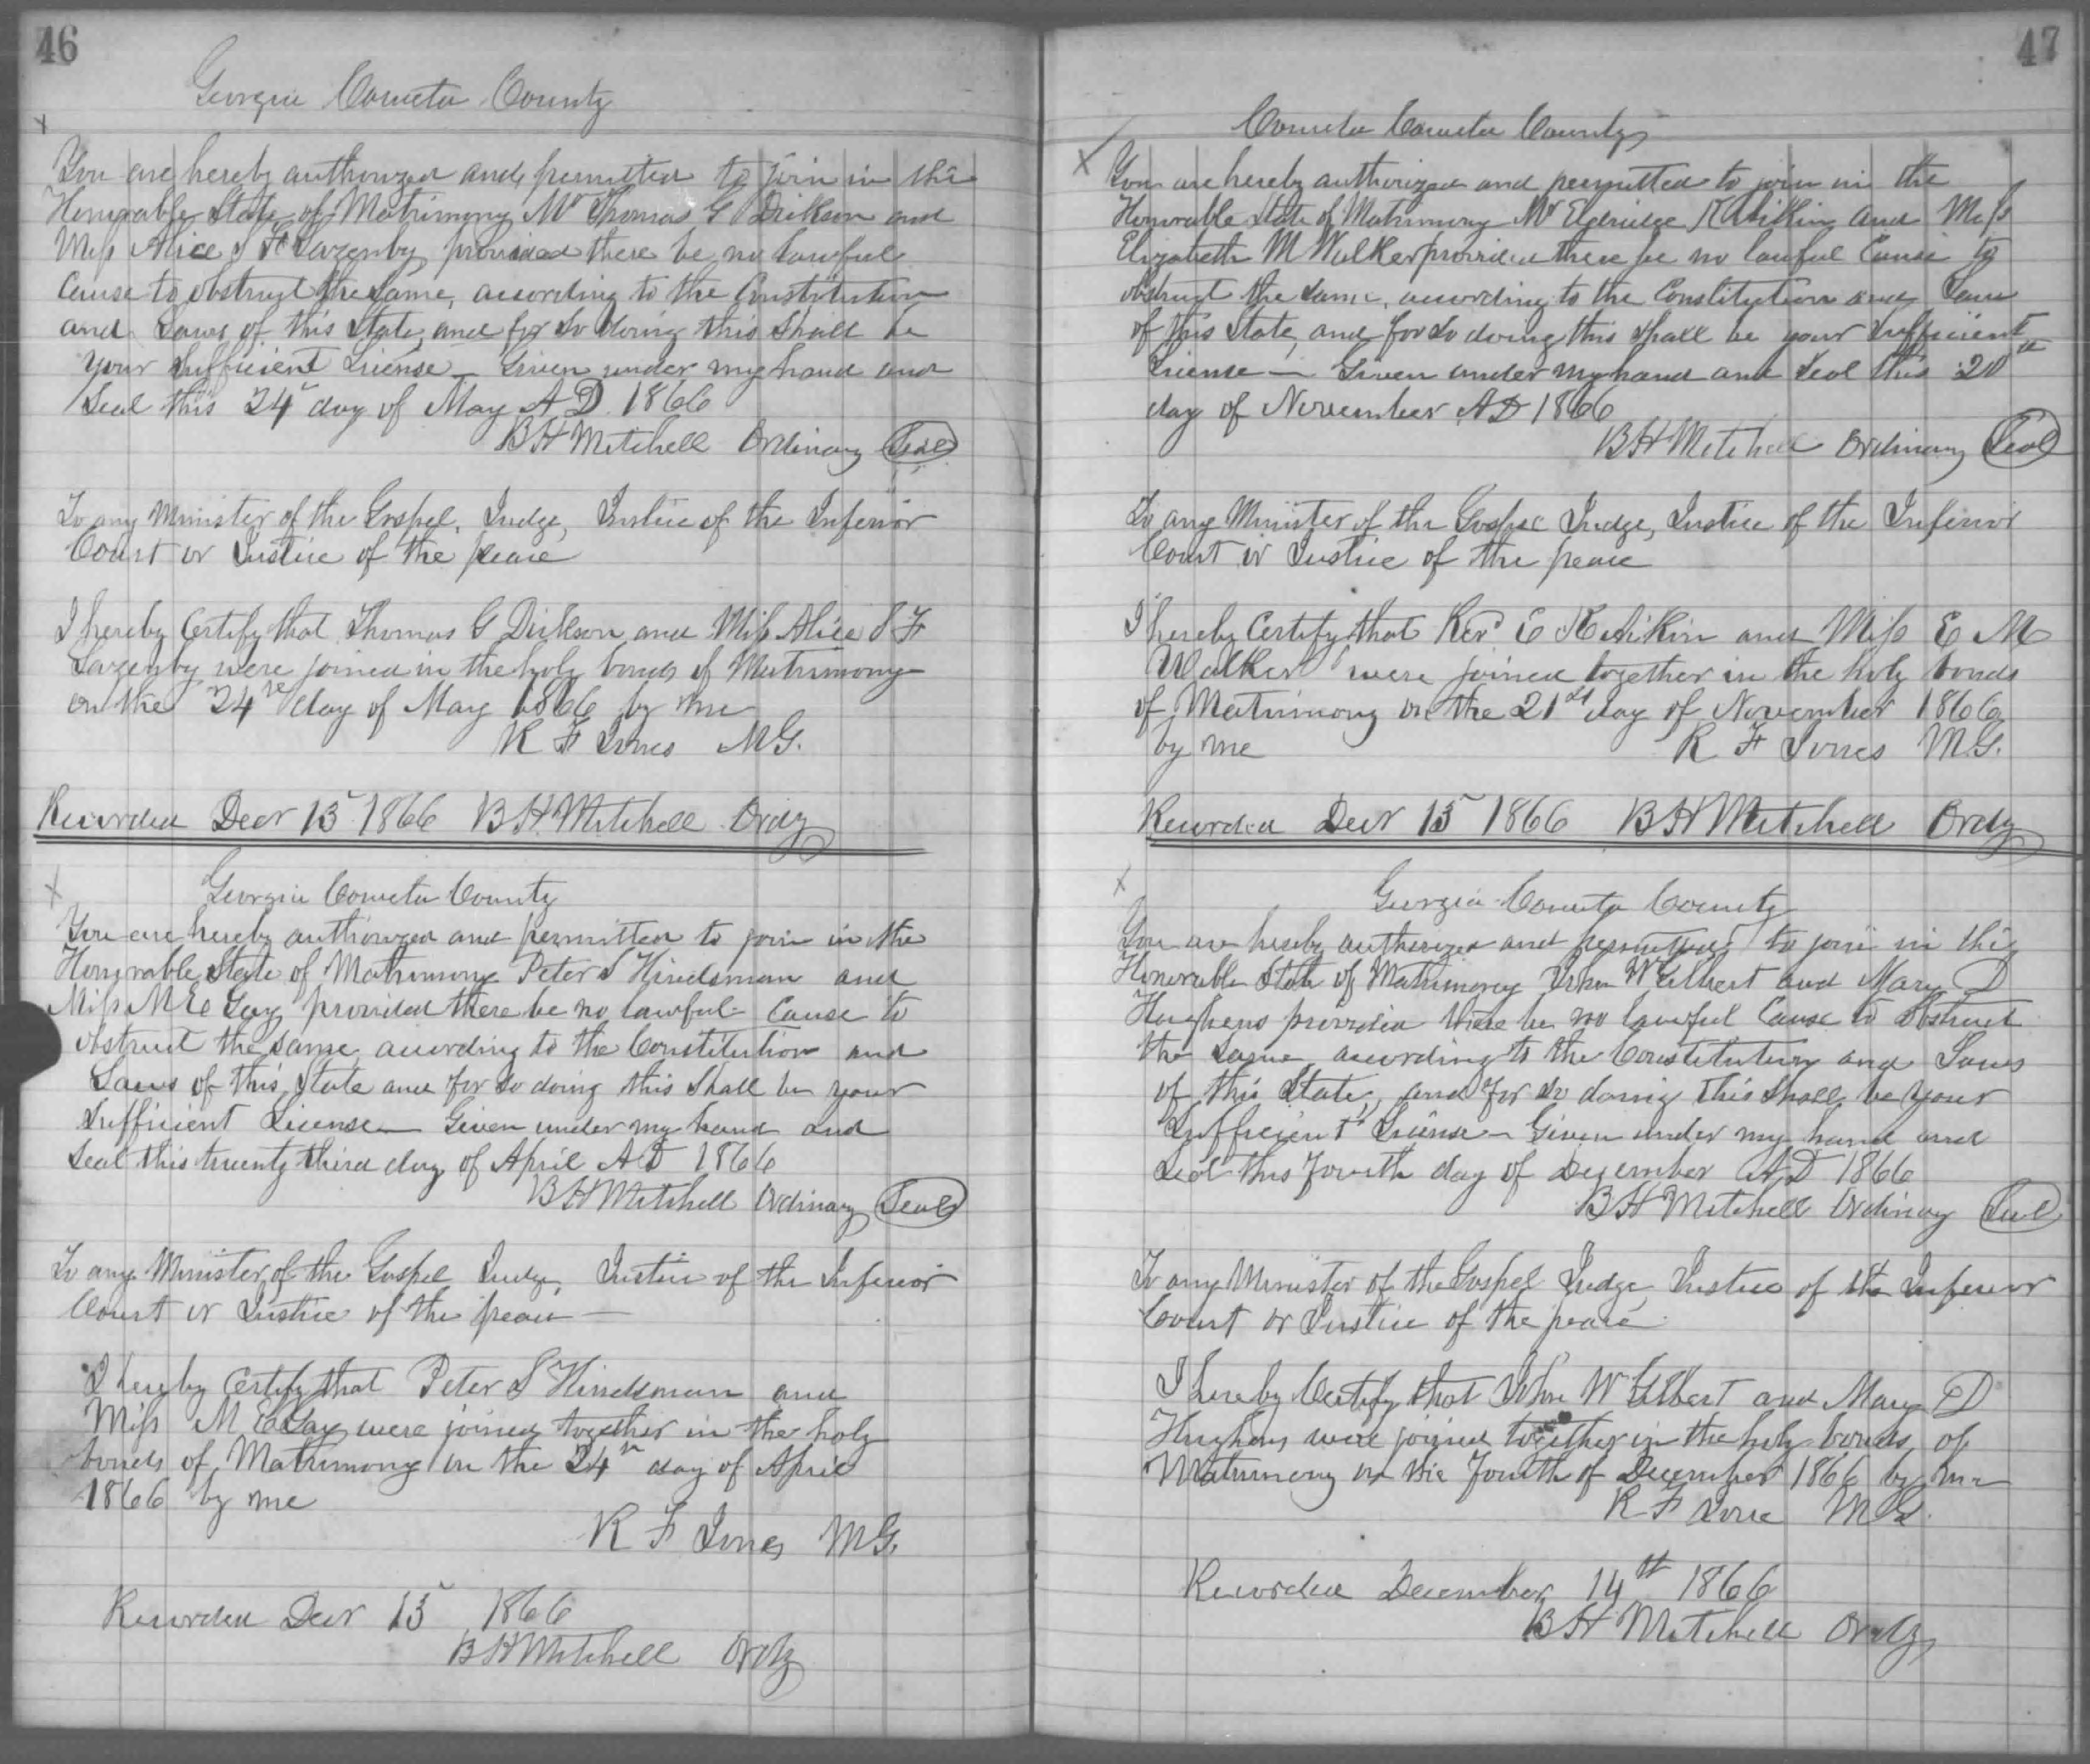 46
Georgia Coweta County
You are hereby authorized and permitted to join in the
Honorable State of Matrimony Mr Thomas G Dickson and
Miss Alice S F Lazenby, provided there be no lawful
Cause to obstruct the same, according to the Constitution
and Laws of this State, and for so doing this Shall be
your Sufficient License – Given under my hand and
Seal this 24 day of May A D. 1866
B H Mitchell Ordinary Seal
To any Minister of the Gospel, Judge, Justice of the Inferior
Court or Justice of the peace
I hereby Certify that Thomas G Dickson and Miss Alice S F
Lazenby were joined in the holy bonds of Matrimony
on the 24th day of May 1866 by me
R F Jones M G.
Recorded Decr 15 1866 B H Mitchell Ordy
Georgia Coweta County
You are hereby authorized and permitted to join in the
Honorable State of Matrimony Peter S Hindsman and
Miss M E Gay provided there be no lawful Cause to
obstruct the same, according to the Constitution and
Laws of this State and for so doing this Shall be your
Sufficient License – Given under my hand and
Seal this twenty third day of April A D 1866
B H Mitchell Ordinary Seal
To any Minister of the Gospel Judge, Justice of the Inferior
Court or Justice of the peace –
I hereby Certify that Peter S Hindsman and
Miss M E Gay were joined together in the holy
bonds of Matrimony on the 24th day of April
1866 by me
R F Jones M G.
Recorded Decr 15 1866
B H Mitchell Ordy
47
Coweta Coweta County
You are hereby authorized and permitted to join in the
Honorable State of Matrimony Mr Eldridge R Aikin and Miss
Elizabeth M Walker provided there be no lawful Cause to
obstruct the same, according to the Constitution and Laws
of this State, and for so doing this shall be your Sufficient
License – Given under my hand and Seal this 20th
day of November A D 1866
B H Mitchell Ordinary Seal
To any Minister of the Gospel Judge, Justice of the Inferior
Court or Justice of the peace
I hereby Certify that Revd E R Aikin and Miss E M
Walker were joined together in the holy bonds
of Matrimony on the 21st day of November 1866
by me R F Jones M.G.
Recorded Decr 15 1866 B H Mitchell Ordy
Georgia Coweta County
You are hereby authorized and permitted to join in the
Honorable State of Matrimony John W Gilbert and Mary D
Hughens provided there be no lawful Cause to obstruct
the Same, according to the Constitution and Laws
of this State, and for so doing this shall be your
Sufficient License – Given under my hand and
Seal this Fourth day of December A D 1866
B H Mitchell Ordinary Seal
To any Minister of the Gospel Judge, Justice of the Inferior
Court or Justice of the peace
I hereby Certify that John W Gilbert and Mary D
Hughens were joined together in the holy bonds of
Matrimony on the Fourth of December 1866 by me
R F Jone M G.
Recorded December 14th 1866
B H Mitchell Ordy